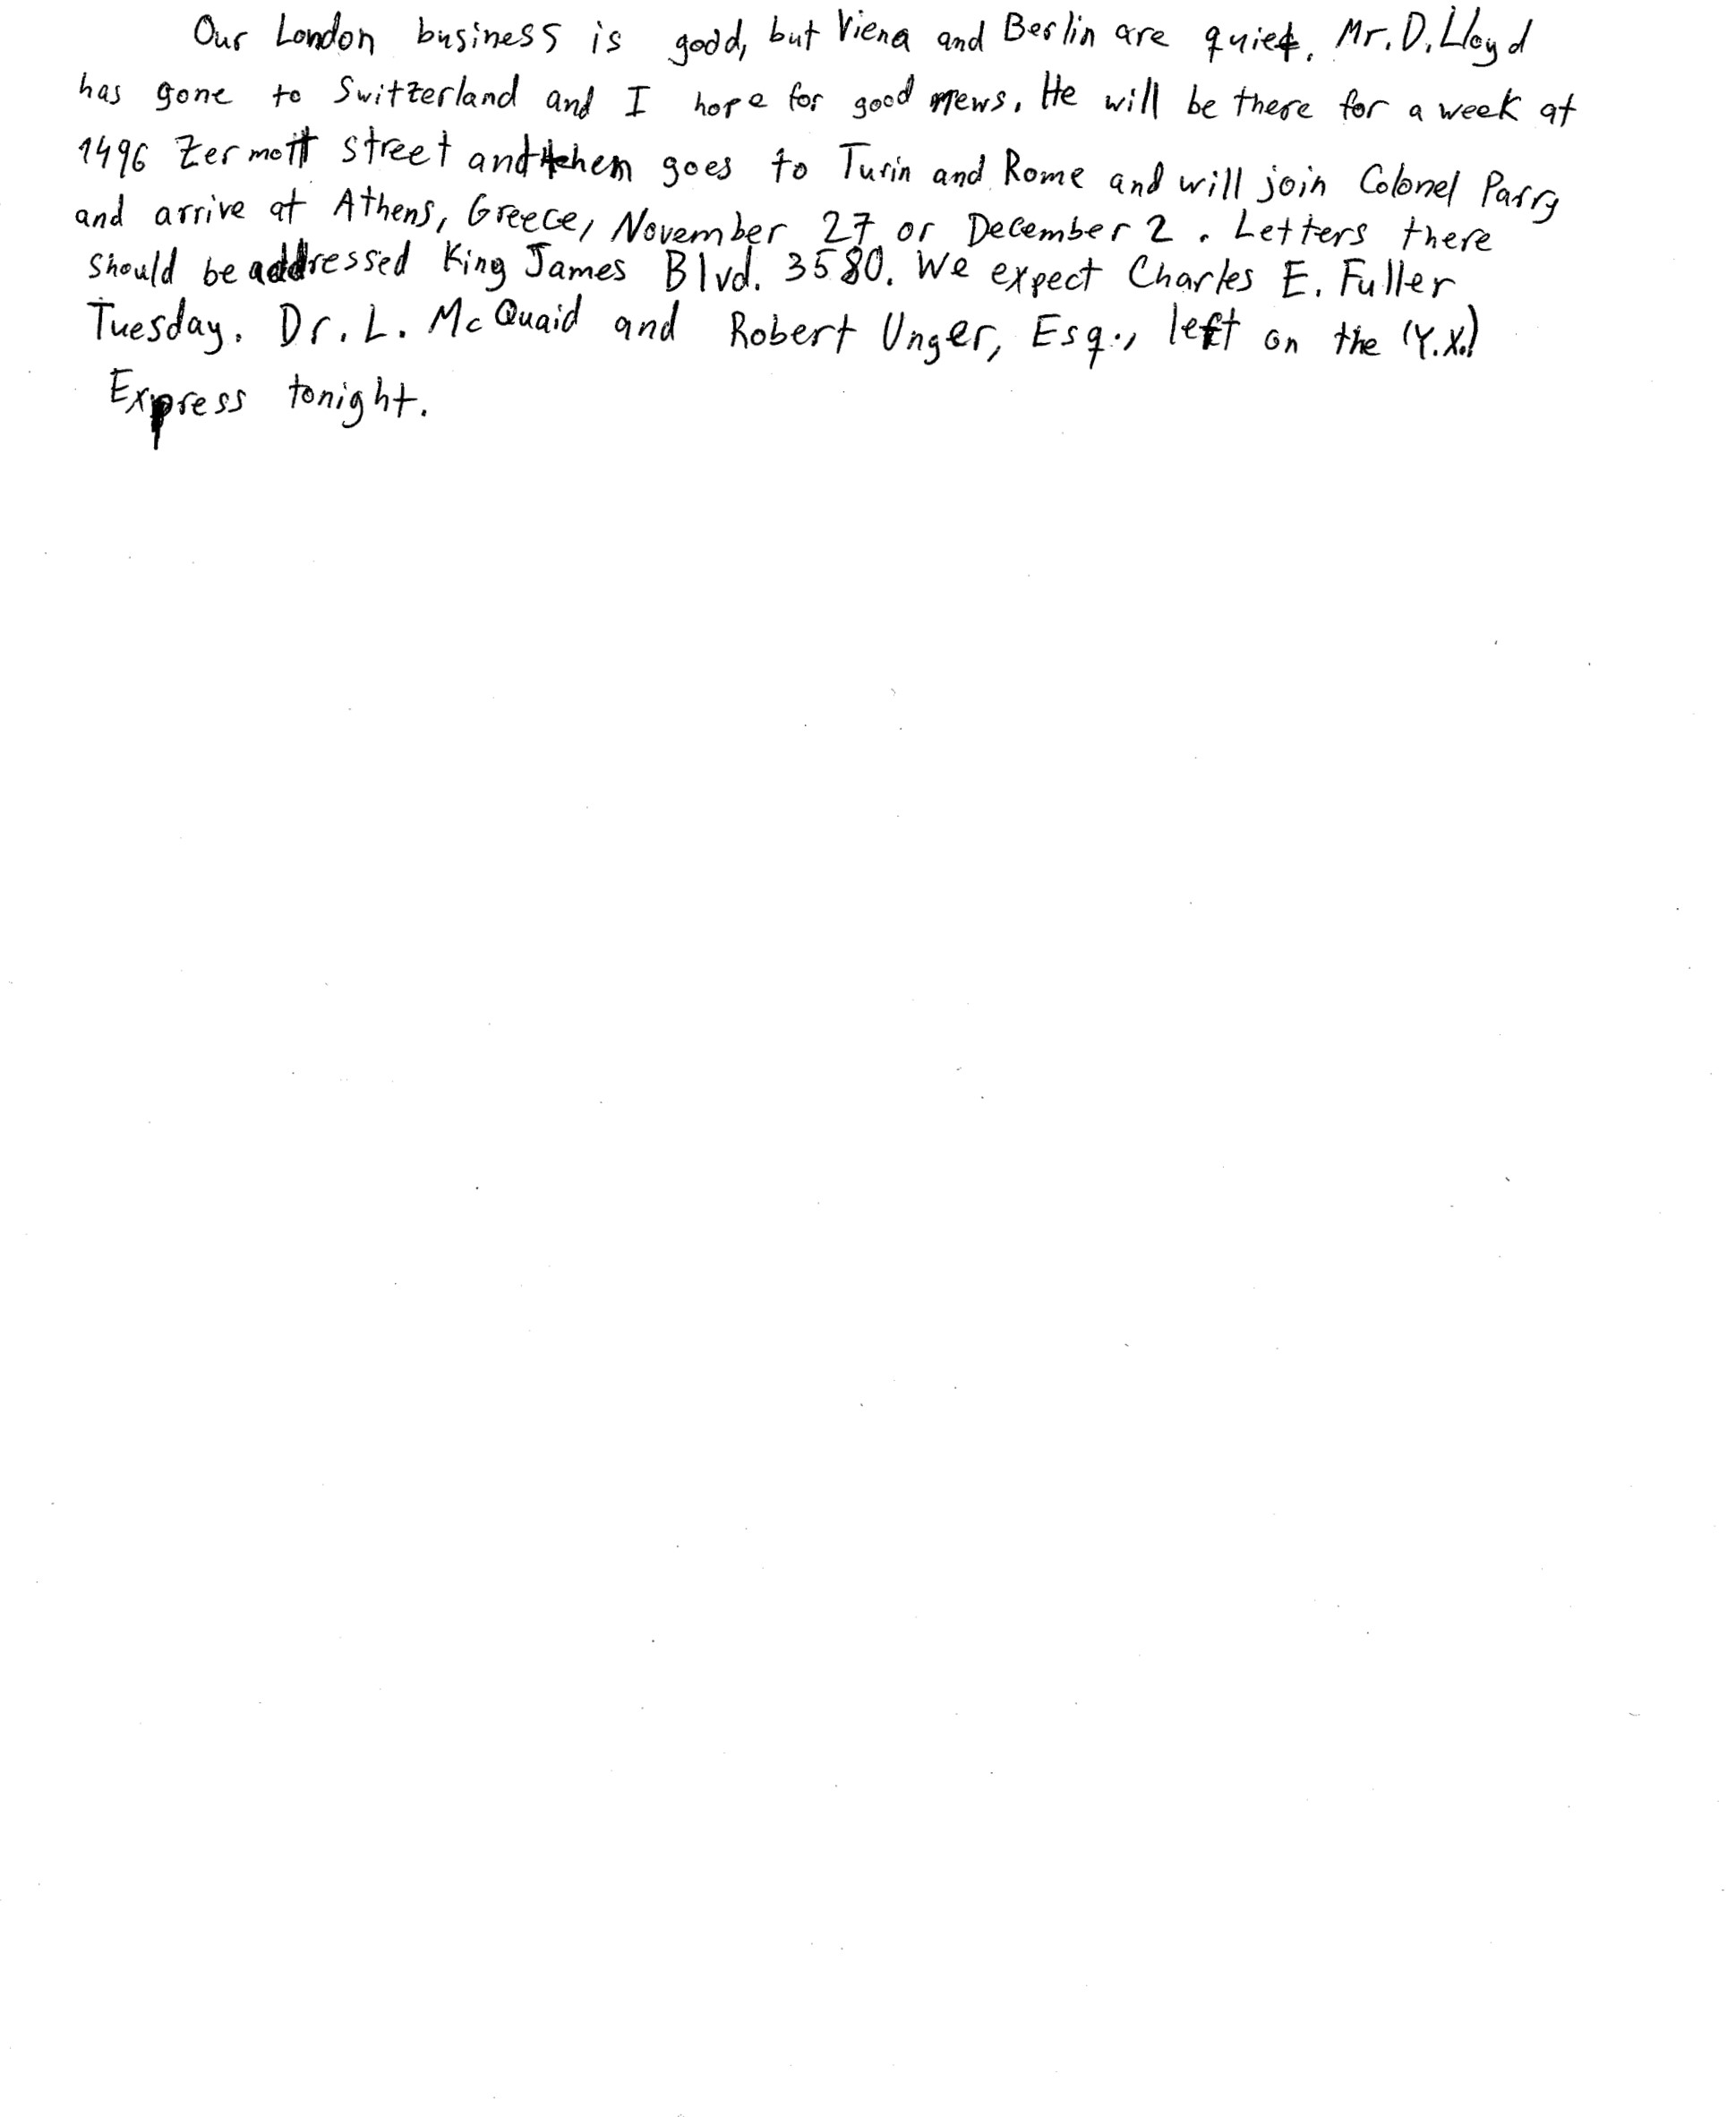 Our London business is good, but Viena and Berlin are quiet. Mr. D. Lloyd
has gone to Switzerland and I hope for good news. He will be there for a week at
1496 Zermott street and then goes to Turin and Rome and will join Colonel Parry
and arrive at Athens, Greece, November 27 or December 2. Letters there
should be addressed King James Blvd. 3580. We expect Charles E. Fuller
Tuesday. Dr. L. McQuaid and Robert Unger, Esq., left on the (Y.X.)
Express tonight.